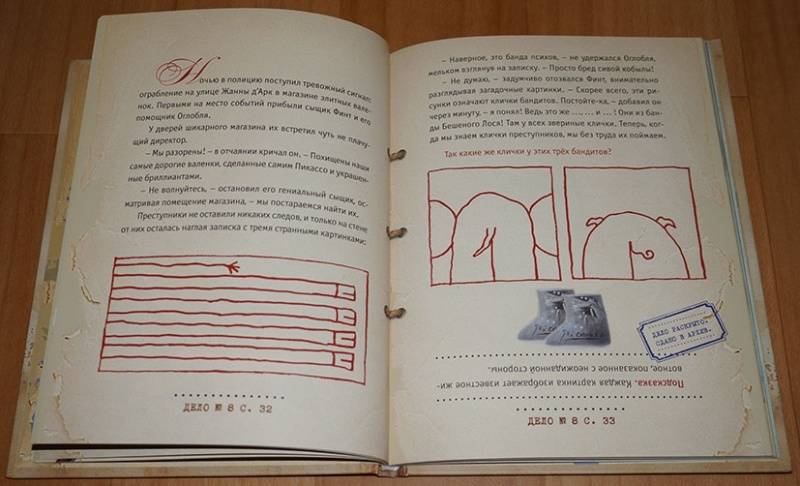 Ночью в полицию поступил тревожный сигнал:
ограбление на улице Жанны д'Арк в магазине элитных вале-
нок. Первыми на место событий прибыли сыщик Финт и его
помощник Оглобля.
У дверей шикарного магазина их встретил чуть не плачу-
щий директор.
– Мы разорены! – в отчаянии кричал он. – Похищены наши
самые дорогие валенки, сделанные самим Пикассо и украшен-
ные бриллиантами.
– Не волнуйтесь, – остановил его гениальный сыщик, ос-
матривая помещение магазина, – мы постараемся найти их.
Преступники не оставили никаких следов, и только на стене
от них осталась наглая записка с тремя странными картинками:
ДЕЛО № 8 С. 32
– Наверное, это банда психов, – не удержался Оглобля,
мельком взглянув на записку. – Просто бред сивой кобылы!
– Не думаю, – задумчиво отозвался Финт, внимательно
разглядывая загадочные картинки. – Скорее всего, эти ри-
сунки означают клички бандитов. Постойте-ка, – добавил он
через минуту, – я понял! Ведь это же ..., ... и ... ! Они из бан-
ды Бешеного Лося! Там у всех звериные клички. Теперь, ког-
да мы знаем клички преступников, мы без труда их поймаем.
Так какие же клички у этих трёх бандитов?
ДЕЛО РАСКРЫТО.
СДАНО В АРХИВ.
Подсказка. Каждая картинка изображает известное жи-
вотное, показанное с неожиданной стороны.
ДЕЛО № 8 С. 33